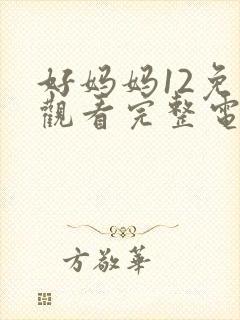 好妈妈12免
觀看完整電
方敬華